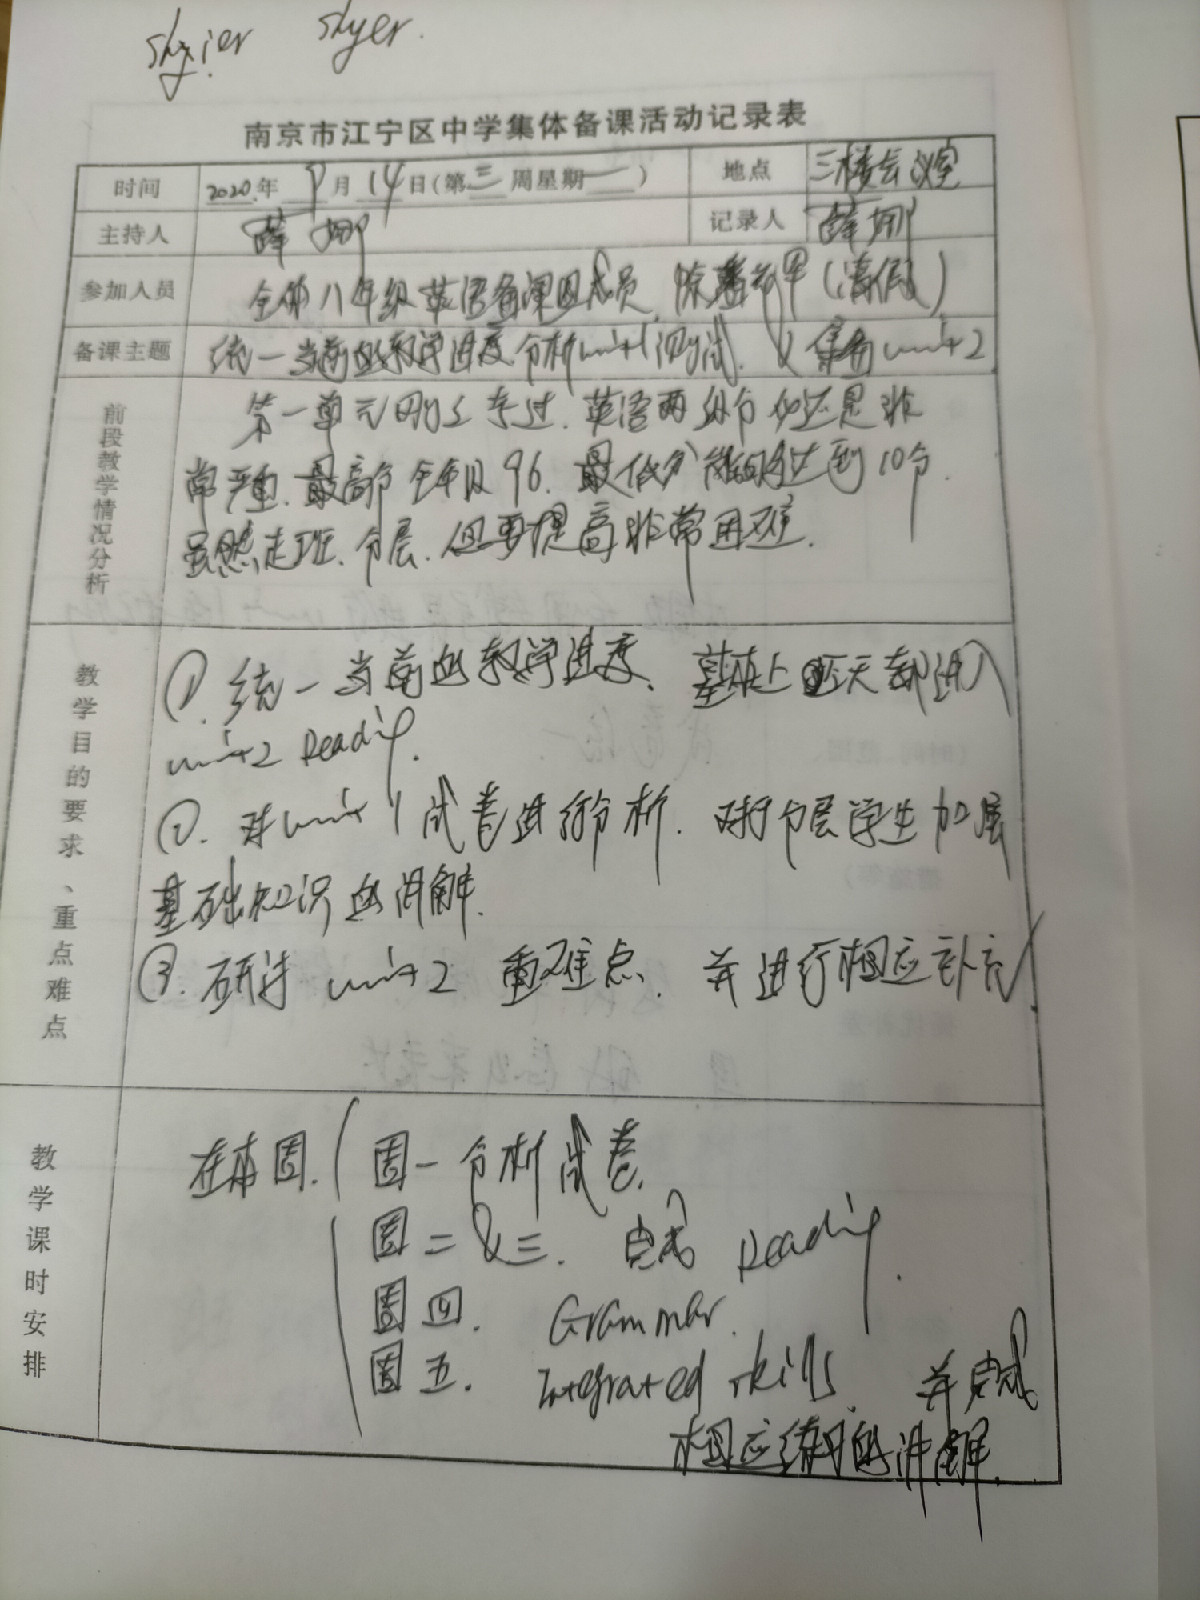 shyier shyer.
南京市江宁区中学集体备课活动记录表
时间 2020年 9月 14日(第三周星期一) 地点 三楼会议室
主持人 薛娜 记录人 薛娜
参加人员 全体八年级英语备课组成员. (请假)
备课主题 统一当前的教学进度.分析unit1测试. & 集备unit2
前段教学情况分析
第一单元刚学过.英语两级分化还是非
常严重.最高分全年级96.最低分 达到10分.
虽然走班.分层.但要提高非常困难.
教学目的要求、重点难点
①.统一当前的教学进度.基本上 天都进入
unit2 Reading.
②.对unit 1试卷进行分析.对于分层学生加展
基础知识的讲解.
③.研讨unit2 重难点.并进行相应补充
教学课时安排
在本周. 周一 分析试卷.
周二&三. 完成 Reading.
周四. Grammar.
周五. Integrated skills. 并完成
相应练习的讲解.